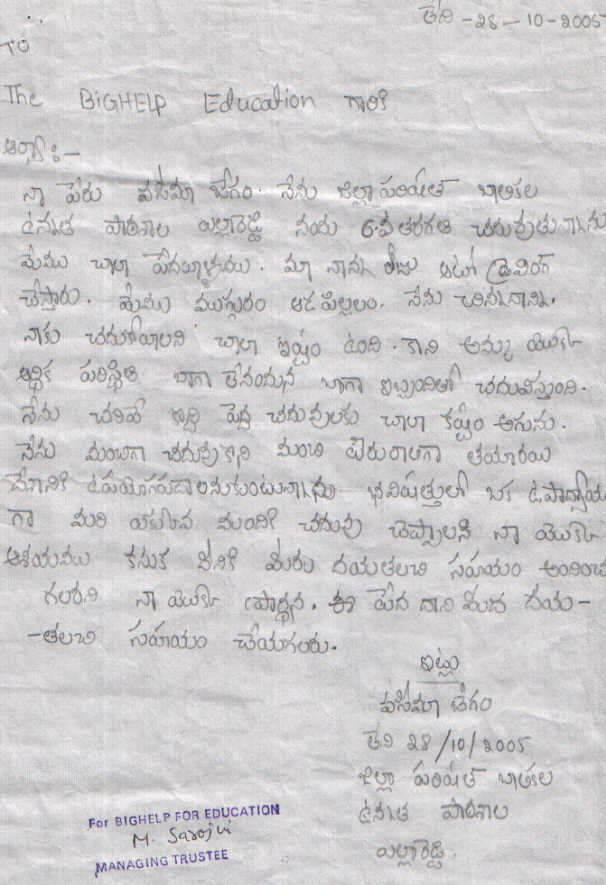 తేది -28-10-2005
TO
The BIGHELP Education గారికి
ఆర్యా:-
నా పేరు వసీమా బేగం. నేను జిల్లా పరిషత్ బాలికల
ఉన్నత పాఠశాల ఎల్లారెడ్డి నందు 6వ తరగతి చదువుతున్నాను
మేము చాలా పేదవాళ్ళము. మా నాన్న రోజు ఆటో డ్రైవింగ్
చేస్తారు. మేము ముగ్గురం ఆడపిల్లలం. నేను చిన్నదాన్ని.
నాకు చదుకోవాలని చాలా ఇష్టం ఉంది. కాని అమ్మ యొక్క
ఆర్థిక పరిస్థితి బాగా లేనందున బాగా ఇబ్బందితో చదువిస్తుంది.
నేను చదివే కొద్ది పెద్ద చదువులకు చాలా కష్టం అగును.
నేను మంచిగా చదువుకొని మంచి పౌరురాలుగా తయారయి
దేశానికి ఉపయోగపడాలనుకుంటున్నాను భవిష్యత్తులో ఒక ఉపాధ్యాయ
గా మరి మందికి చదువు చెప్పాలని నా యొక్క
ఆశయము కనుక దీనికి మీరు దయతలచి సహయం అందించ
గలరని నా యొక్క ప్రార్థన. ఈ పేద దాని మీద దయ-
-తలచి సహయం చేయగలరు.
ఇట్లు
వసీమా బేగం
తేది 28/10/2005
జిల్లా పరిషత్ బాలికల
ఉన్నత పాఠశాల
ఎల్లారెడ్డి.
For BIGHELP FOR EDUCATION
M. Sarojini
MANAGING TRUSTEE